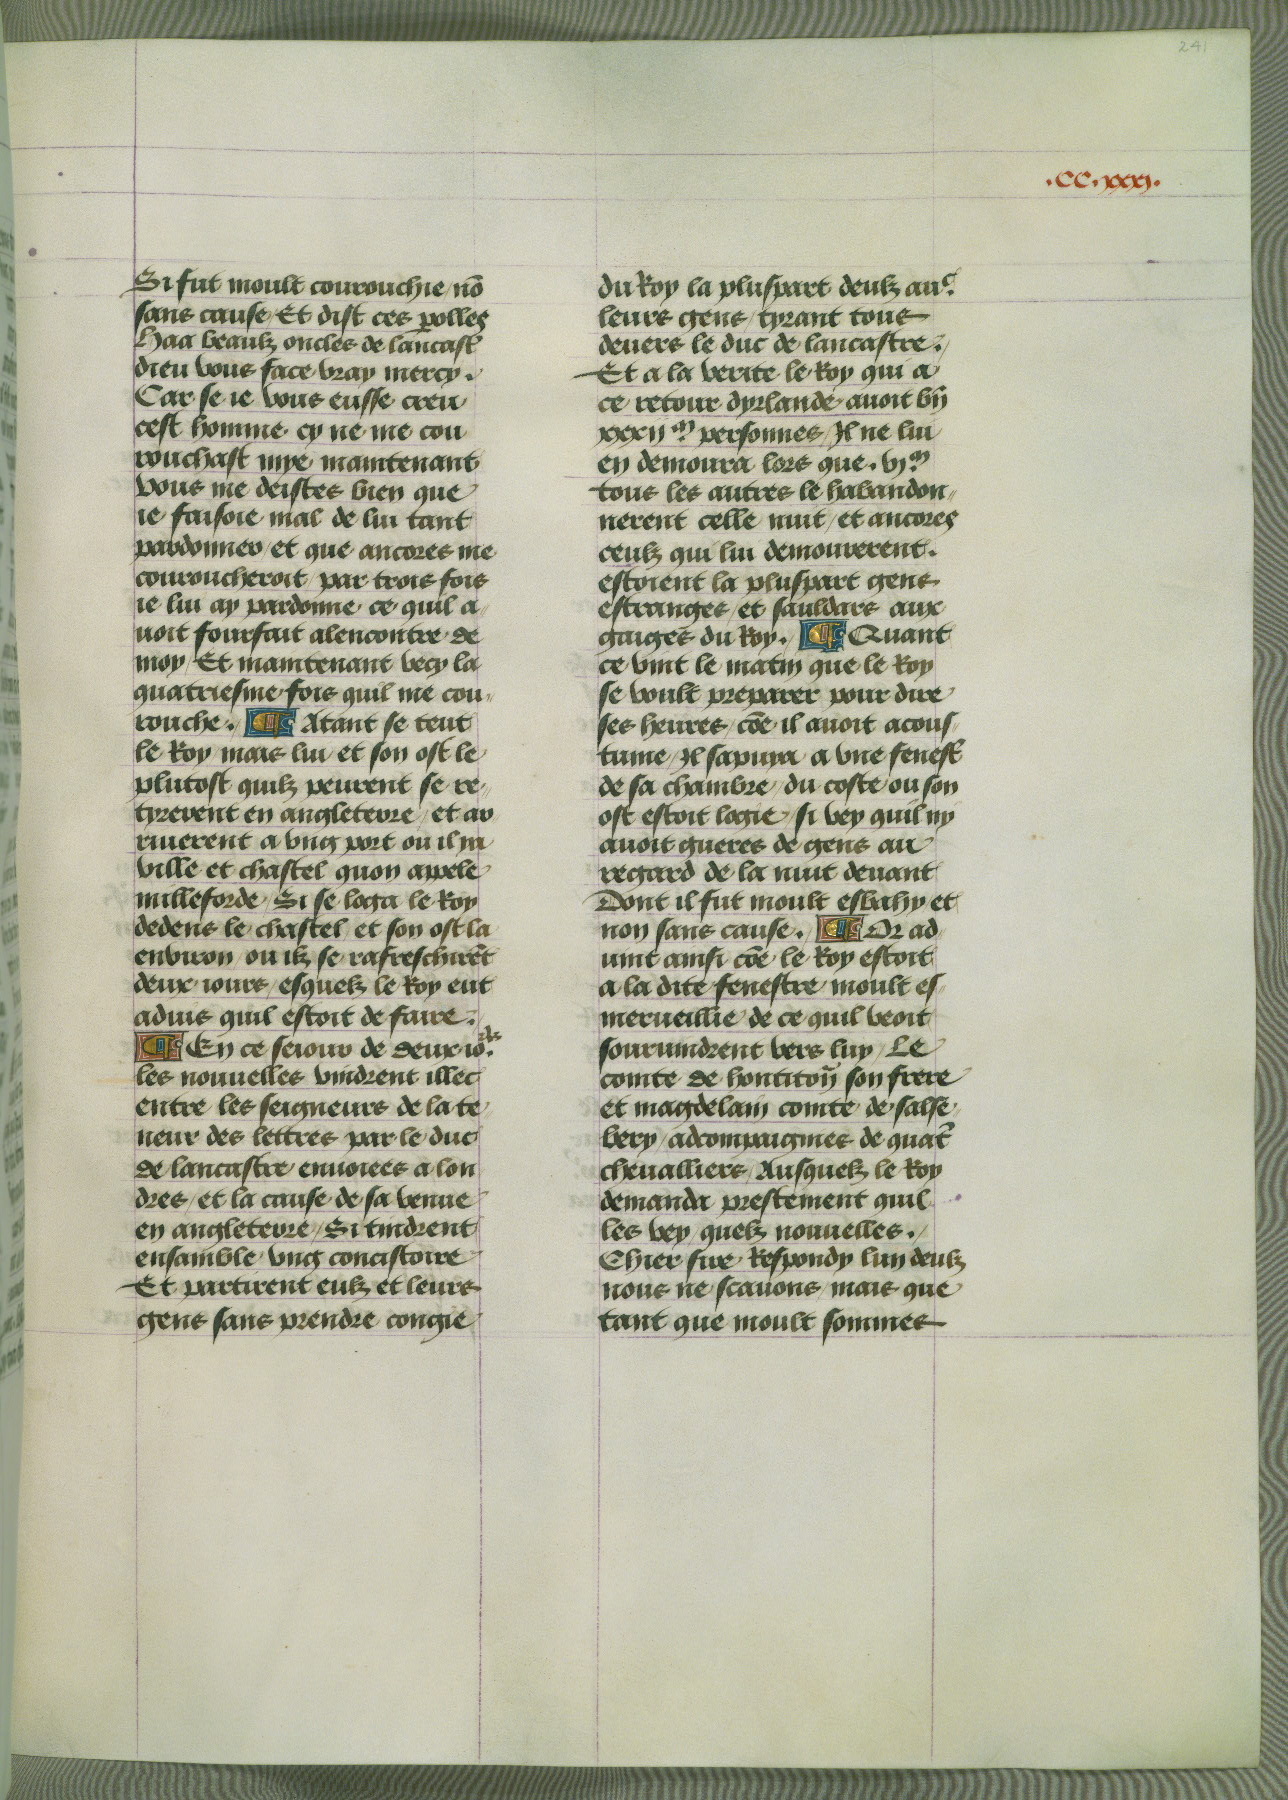 241
.CC.xxxj.
Si fut moult courouchie / nō
sans cause / Et dist ces ꝑolles
Haa beaulz oncles de lancast̄
dieu vous face vray mercy.
Car se ie vous eusse creu
cest homme cy ne me cou
rouchast mye maintenant
vous me deistes bien que
ie faisoie mal de lui tant
pardonner / et que ancores me
couroucheroit / par trois fois
ie lui ay pardonne ce quil a-
uoit fourfait alencontre de
moy / Et maintenant vecy la
quatriesme fois quil me cou-
rouche. ¶ Atant se teut
le Roy / mais lui et son ost le
plutost quilz peurent se re-
tyrerent en angleterre / et ar
riuerent a vng port ou il ya
ville et chastel quon appele
milleforde / Si se loga le Roy
dedens le chastel / et son ost la
environ / ou ilz se rafreschirēt
deux iours / esquelz le Roy eut
aduis quil estoit de faire.
¶ En ce seiour de deux io.rs
les nouuelles vindrent illec
entre les seigneurs de la te-
neur des lettres par le duc
de lancastre enuoiees a lon
dres / et la cause de sa venue
en angleterre / Si tindrent
ensamble vng concistoire
Et partirent eulz et leurs
gens sans prendre congie
du Roy la pluspart deulz auc̄.
leurs gens / tyrant tous
deuers le duc de lancastre.
Et a la verite le Roy qui a
ce retour dyrlande auoit bn̄
xxxij m personnes / Il ne lui
en demoura lors que. vj. m
tous les autres le habandon-
nerent celle nuit / et ancores
ceulz qui lui demourerent.
estoient la pluspart gens
estranges / et sauldars aux
gaiges du Roy. ¶ Quant
ce vint le matin que le Roy
se voult preparer pour dire
ses heures / cōe il auoit acous-
tume / Il sapuya a vne fenest̄
de sa chambre / du coste ou son
ost estoit logie / si vey quil ny
auoit gueres de gens au
regard de la nuit deuant
Dont il fut moult esbahy et
non sans cause. ¶ Or ad
uint ainsi cōe le Roy estoit
a la dite fenestre moult es-
merueillie de ce quil veoit
souruindrent vers luy / Le
comte de hontiton̄ son frere
et magdelain comte de salse-
bery / adcompaignies de quat̄
cheualliers / Ausquelz le Roy
demanda prestement quil
les vey / quelz nouuelles.
Chier sire Respondy lun deulz
nous ne scauons / mais que
tant que moult sommes